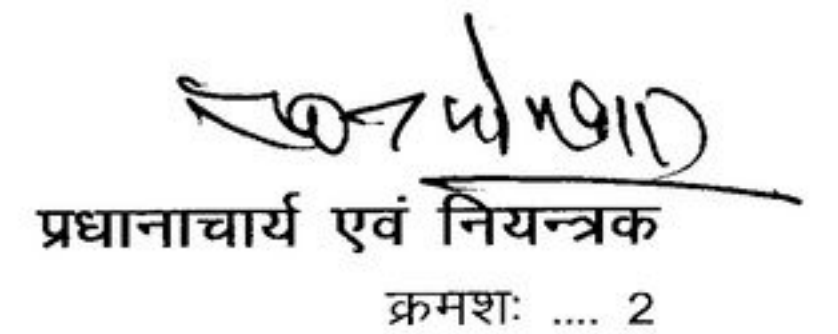 प्रधानाचार्य एवं नियन्त्रक
क्रमशः .... 2